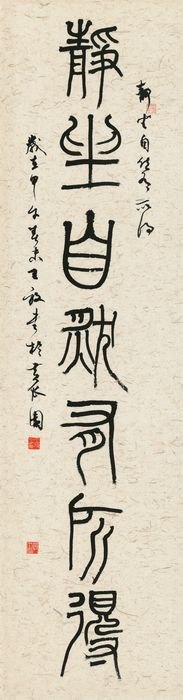 靜坐自然有所得
靜坐自然有所得
歲在甲午春末王書於園